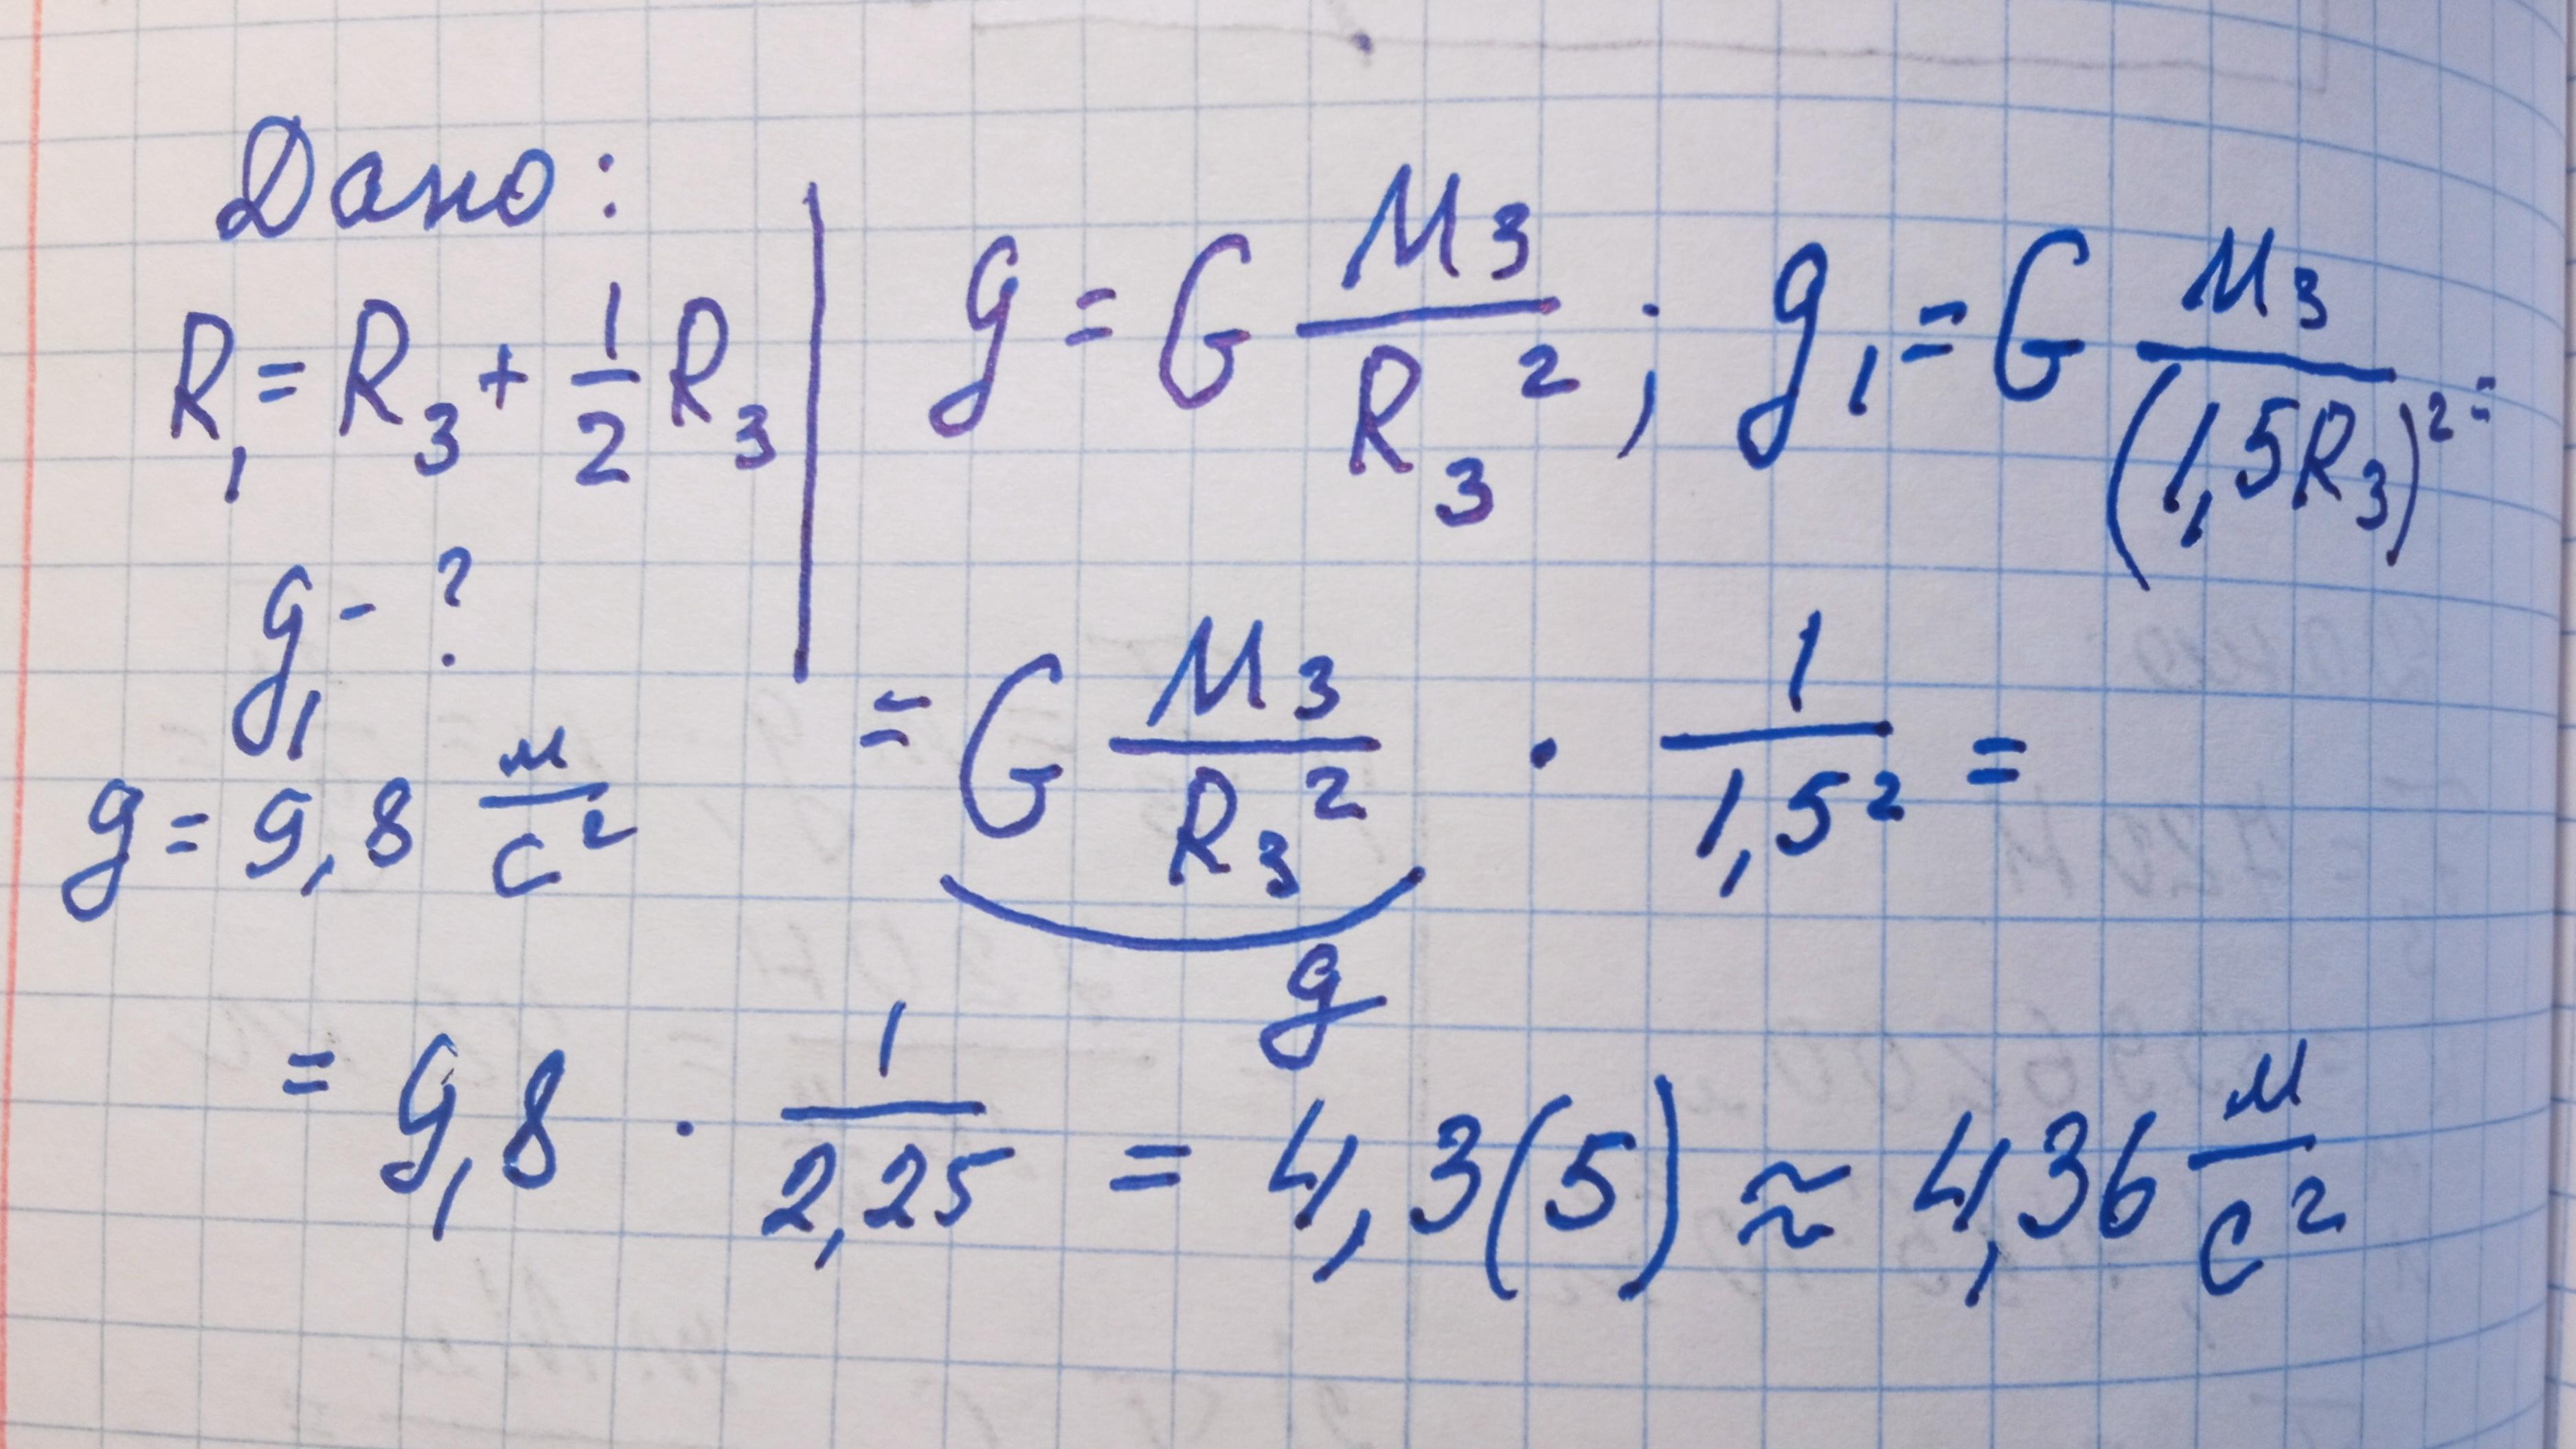 Дано:
R₁ = R₃ + 1/2 R₃
g₁ - ?
g = 9,8 м/с²
g = G М₃/R₃² ; g₁ = G М₃/(1,5R₃)² =
= G М₃/R₃² · 1/1,5² =
g
= 9,8 · 1/2,25 = 4,3(5) ≈ 4,36 м/с²